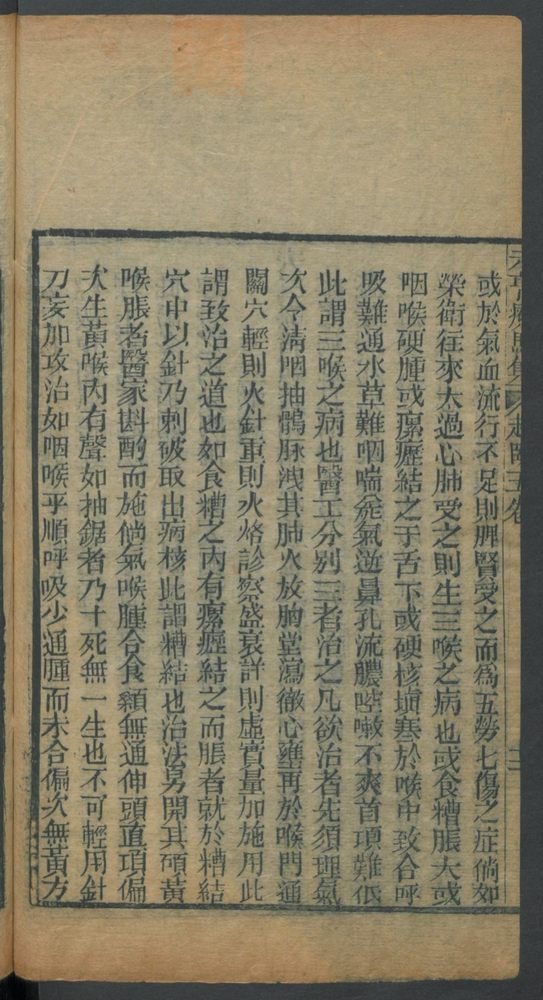 元亨療馬集
起臥五卷
或於氣血流行不足則脾腎受之而爲五勞七傷之症倘如
榮衛往來太過心肺受之則生三喉之病也或食糟脹大或
咽喉硬腫或瘰癧結之于舌下或硬核塡塞於喉中致合呼
吸難通水草難咽喘麄氣逆鼻孔流膿啌嗽不爽首項難低
此謂三喉之病也醫工分别三者治之凡欲治者先須理氣
次令清咽抽鶻脉洩其肺火放胸堂瀉徹心壅再於喉門通
關穴輕則火針重則火烙診察盛衰詳則虛實量加施用此
謂致治之道也如食糟之内有瘰癧結之而脹者就於糟結
穴中以針乃刺破取出病核此謂糟結也治法另開其碩黃
喉脹者醫家斟酌而施倘氣喉腫合食顙無通伸頭直項偏
次生黃喉内有聲如抽鋸者乃十死無一生也不可輕用針
刀妄加攻治如咽喉乎順呼吸少通腫而未合偏次無黃方